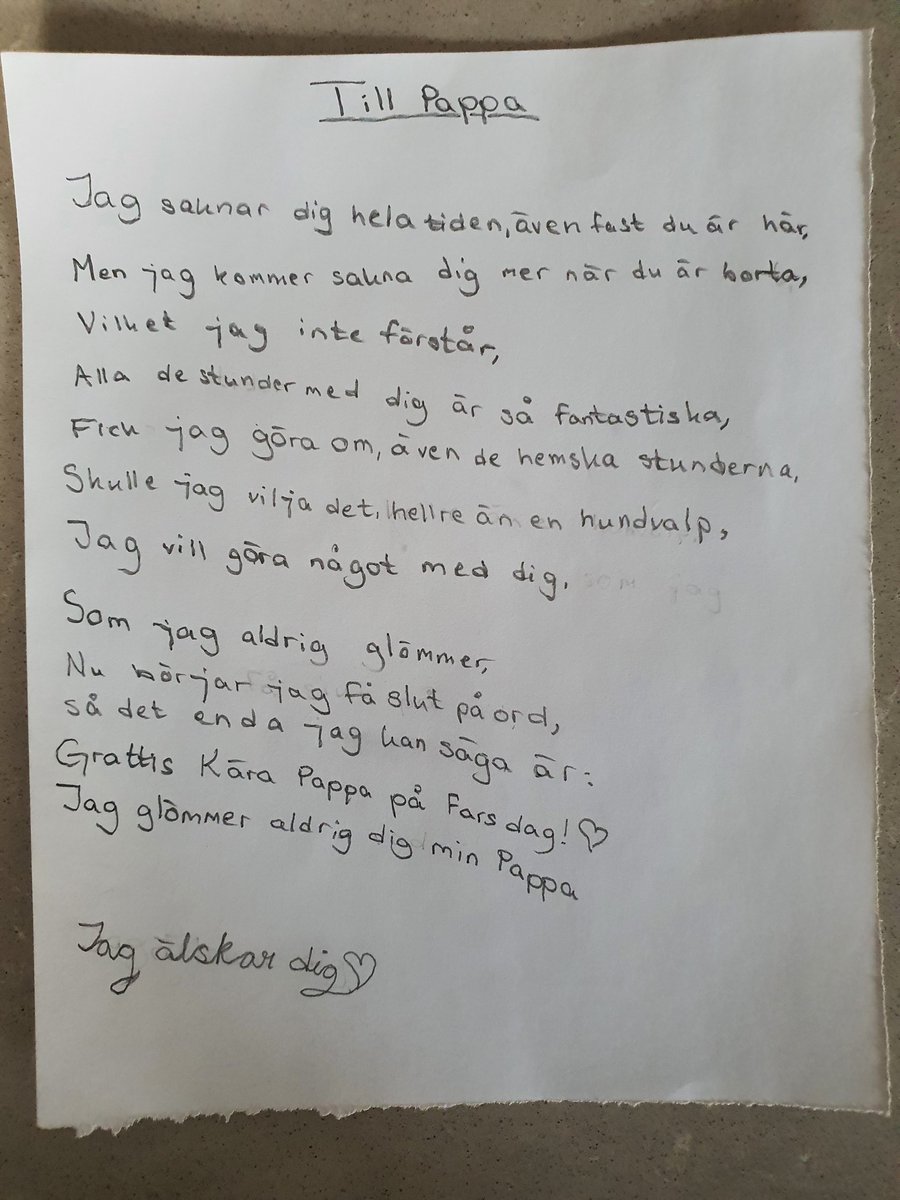 Till Pappa
Jag saknar dig hela tiden, även fast du är här,
Men jag kommer sakna dig mer när du är borta,
Vilket jag inte förstår,
Alla de stunder med dig är så fantastiska,
Fick jag göra om, även de hemska stunderna,
Skulle jag vilja det, hellre än en hundvalp,
Jag vill göra något med dig, som jag
Som jag aldrig glömmer,
Nu börjar jag få slut på ord,
så det enda jag kan säga är:
Grattis Kära Pappa på Fars dag! ♡
Jag glömmer aldrig dig min Pappa
Jag älskar dig ♡